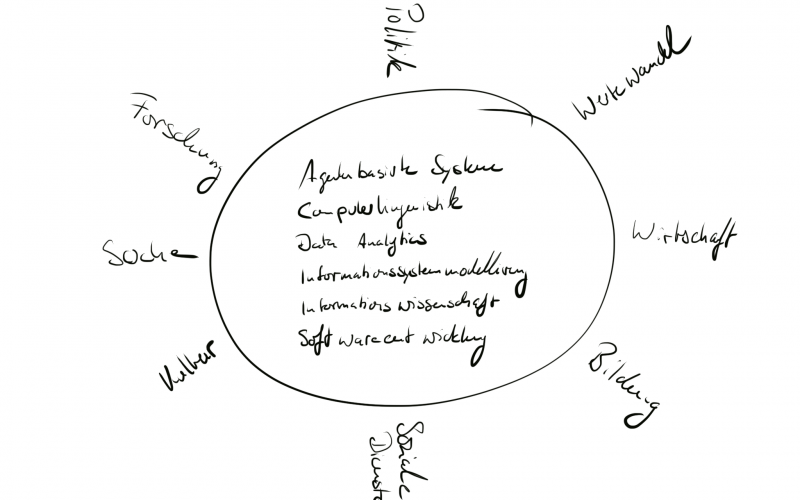 Politik
Wertewandel
Forschung
Agentenbasierte Systeme
Computerlinguistik
Data Analytics
Wirtschaft
Suche
Informationssystemmodellierung
Informationswissenschaft
Softwareentwicklung
Kultur
Bildung
Soziale
Dienste